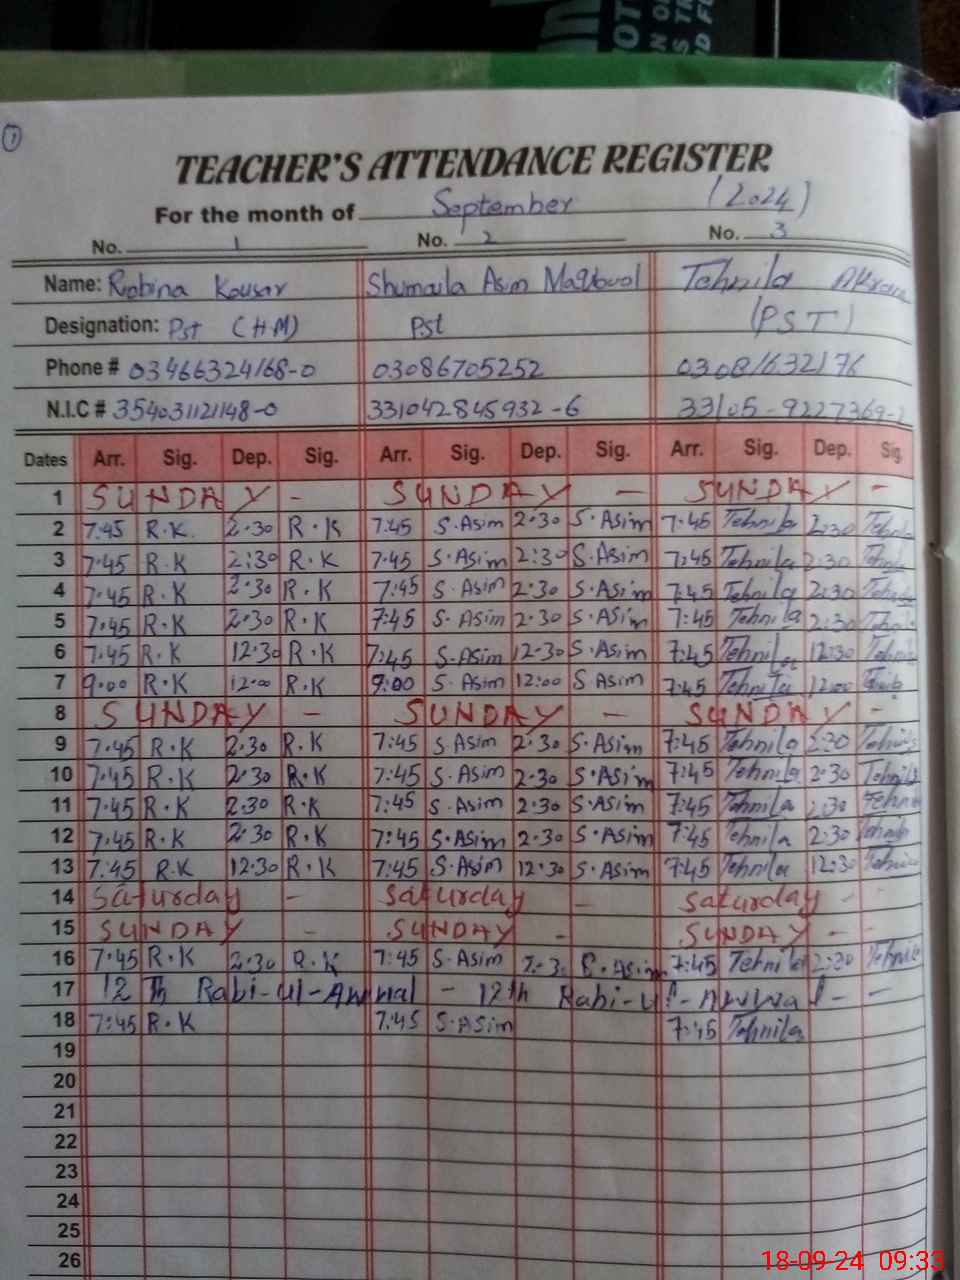 OT
N OI
S TR
D FU
1
TEACHER'S ATTENDANCE REGISTER
For the month of September (2024)
No. 1 No. 2 No. 3
Name: Robina Kousar Shumaila Asim Maqbool Tehnila Akram
Designation: Pst (HM) Pst (PST)
Phone # 03466324168-0 03086705252 03081632176
N.I.C # 354031121148-0 331042845932-6 33105-9227369-2
Dates Arr. Sig. Dep. Sig. Arr. Sig. Dep. Sig. Arr. Sig. Dep. Sig.
1 SUNDAY - SUNDAY - SUNDAY -
2 7:45 R.K. 2:30 R.K 7:45 S.Asim 2:30 S.Asim 7:45 Tehnila 2:30 Tehnila
3 7:45 R.K 2:30 R.K 7:45 S.Asim 2:30 S.Asim 7:45 Tehnila 2:30 Tehnila
4 7:45 R.K 2:30 R.K 7:45 S.Asim 2:30 S.Asim 7:45 Tehnila 2:30 Tehnila
5 7:45 R.K 2:30 R.K 7:45 S.Asim 2:30 S.Asim 7:45 Tehnila 2:30 Tehnila
6 7:45 R.K 12:30 R.K 7:45 S.Asim 12:30 S.Asim 7:45 Tehnila 12:30 Tehnila
7 9:00 R.K 12:00 R.K 9:00 S.Asim 12:00 S.Asim 7:45 Tehnila 12:00 Tehnila
8 SUNDAY - SUNDAY - SUNDAY -
9 7:45 R.K 2:30 R.K 7:45 S Asim 2:30 S.Asim 7:45 Tehnila 2:30 Tehnila
10 7:45 R.K 2:30 R.K 7:45 S.Asim 2:30 S.Asim 7:45 Tehnila 2:30 Tehnila
11 7:45 R.K 2:30 R.K 7:45 S.Asim 2:30 S.Asim 7:45 Tehnila 2:30 Tehnila
12 7:45 R.K 2:30 R.K 7:45 S.Asim 2:30 S.Asim 7:45 Tehnila 2:30 Tehnila
13 7:45 R.K 12:30 R.K 7:45 S.Asim 12:30 S.Asim 7:45 Tehnila 12:30 Tehnila
14 Saturday - Saturday - Saturday -
15 SUNDAY - SUNDAY - SUNDAY - -
16 7:45 R.K 2:30 R.K 7:45 S.Asim 2:30 S.Asim 7:45 Tehnila 2:30 Tehnila
17 12 Th Rabi-ul-Awwal - 12th Rabi-ul-Awwal - -
18 7:45 R.K 7:45 S.Asim 7:45 Tehnila
19
20
21
22
23
24
25
26
18-09-24 09:33